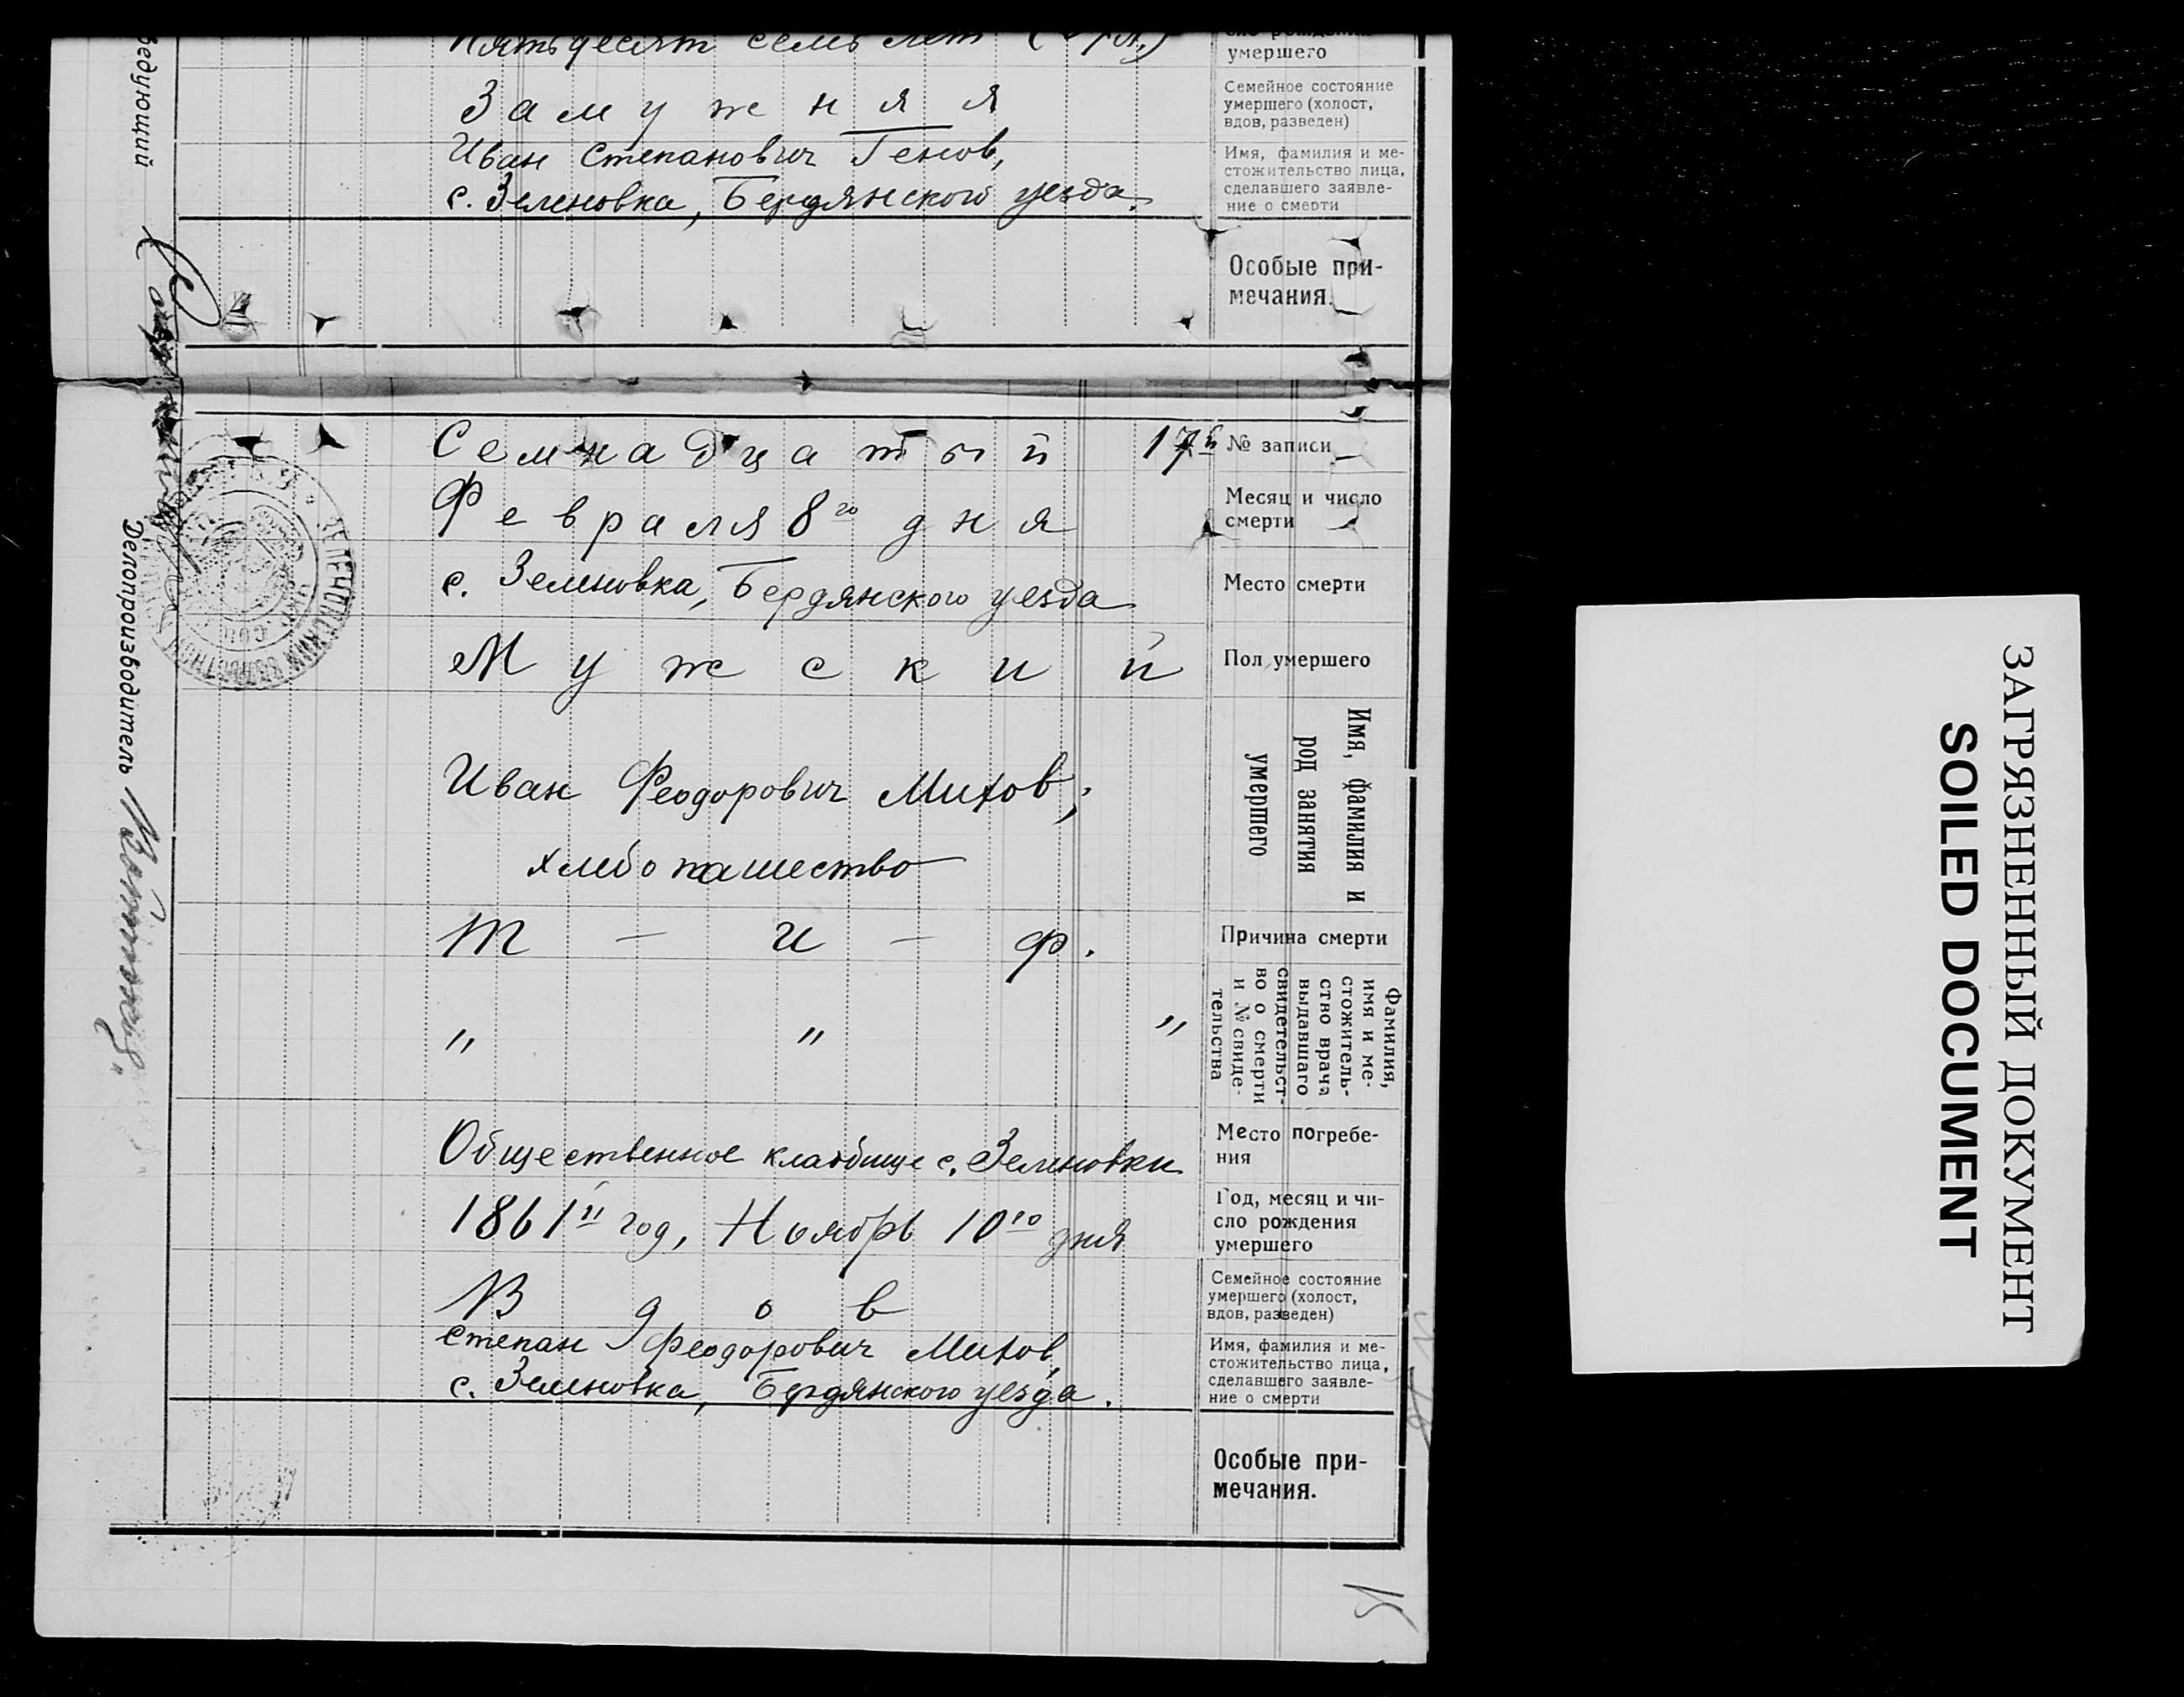 Пятьдесят семь лет
умершего
Замужняя
Семейное состояние
умершего (холост,
вдов, разведен)
Иван Степанович Генов,
с. Зеленовка, Бердянского уезда.
Имя, фамилия и ме-
стожительство лица,
сделавшего заявле-
ние о смерти
Особые при-
мечания.
Семнадцатый 17й
№ записи
Февраля 8го дня
Месяц и число
смерти
с. Зеленовка, Бердянского уезда
Место смерти
Мужской
Пол умершего
Иван Феодорович Митов;
хлебопашество
Имя, фамилия и
род занятия
умершего
Т – и – ф.
Причина смерти
" " "
Фамилия,
имя и ме-
стожитель-
ство врача
выдавшего
свидетельст-
во о смерти
и № свиде-
тельства
Общественное кладбище с. Зеленовки
Место погребе-
ния
1861й год, Ноябрь 10го дня
Год, месяц и чи-
сло рождения
умершего
Вдов
Семейное состояние
умершего (холост,
вдов, разведен)
Степан Феодорович Митов,
с. Зеленовка, Бердянского уезда.
Имя, фамилия и ме-
стожительство лица,
сделавшего заявле-
ние о смерти
Особые при-
мечания.
Делопроизводитель
ЗАГРЯЗНЕННЫЙ ДОКУМЕНТ
SOILED DOCUMENT